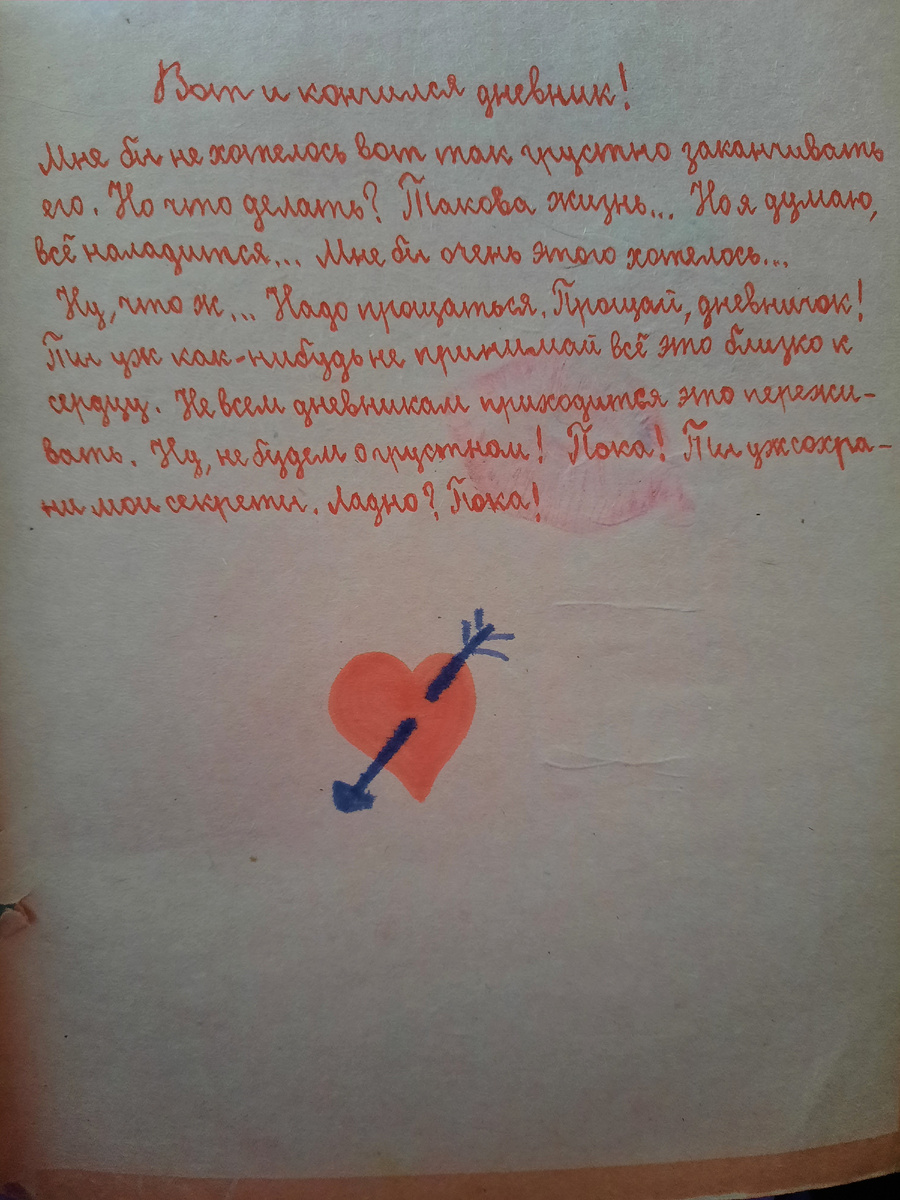 Вот и кончился дневник!
Мне бы не хотелось вот так грустно заканчивать
его. Но что делать? Такова жизнь... Но я думаю,
всё наладится... Мне бы очень этого хотелось...
Ну, что ж... Надо прощаться. Прощай, дневничок!
Ты уж как-нибудь не принимай всё это близко к
сердцу. Не всем дневникам приходится это пережи-
вать. Ну, не будем о грустном! Пока! Ты уж сохра-
ни мои секреты. Ладно? Пока!